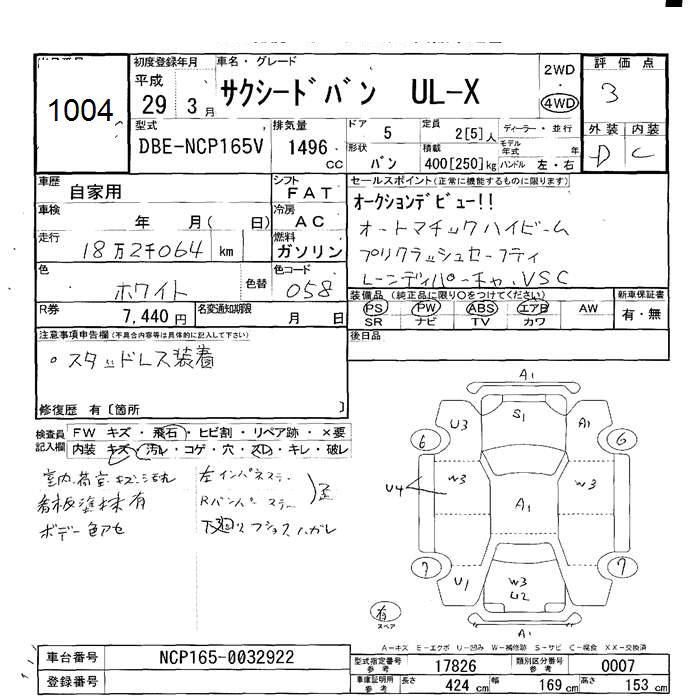 1004
初度登録年月
平成
29年 3月
車名・グレード
サクシードバン UL-X
2WD
4WD
評価点
3
外装 内装
D C
型式
DBE-NCP165V
排気量
1496 cc
ドア 5
定員 2[5]人
ディーラー・並行
形状 バン
積載 400[250]kg
モデル年式 年
ハンドル 左・右
車歴 自家用
シフト FAT
車検 年 月( 日)
冷房 AC
走行 18万2千064 km
燃料 ガソリン
色 ホワイト
色替
色コード 058
R券 7,440円
名変通知期限 月 日
セールスポイント(正常に機能するものに限ります)
オークションデビュー!!
オートマチックハイビーム
プリクラッシュセーフティ
レーンディパーチャ、VSC
装備品(純正品に限り○をつけてください)
PS PW ABS エアB AW
SR ナビ TV カワ
新車保証書
有・無
後日品
注意事項申告欄(不具合内容等は具体的に記入して下さい)
・スタッドレス装着
修復歴 有〔箇所 〕
検査員記入欄
FW キズ・飛石・ヒビ割・リペア跡・×要
内装 キズ・汚れ・コゲ・穴・スレ・キレ・破レ
室内、荷室キズ、汚れ
看板塗抹有
ボデー色アセ
左インパネステー
Rバンパーステー
A1
U3 S1 A1
6 6
U4 W3 A1 W3
7 7
U1 W3 U2
A1
有
スペア
A-キズ E-エクボ U-凹み W-補修跡 S-サビ C-腐食 XX-交換済
車台番号 NCP165-0032922
登録番号
型式指定番号 参考 17826
類別区分番号 参考 0007
車庫証明用 参考 長さ 424cm 幅 169cm 高さ 153cm